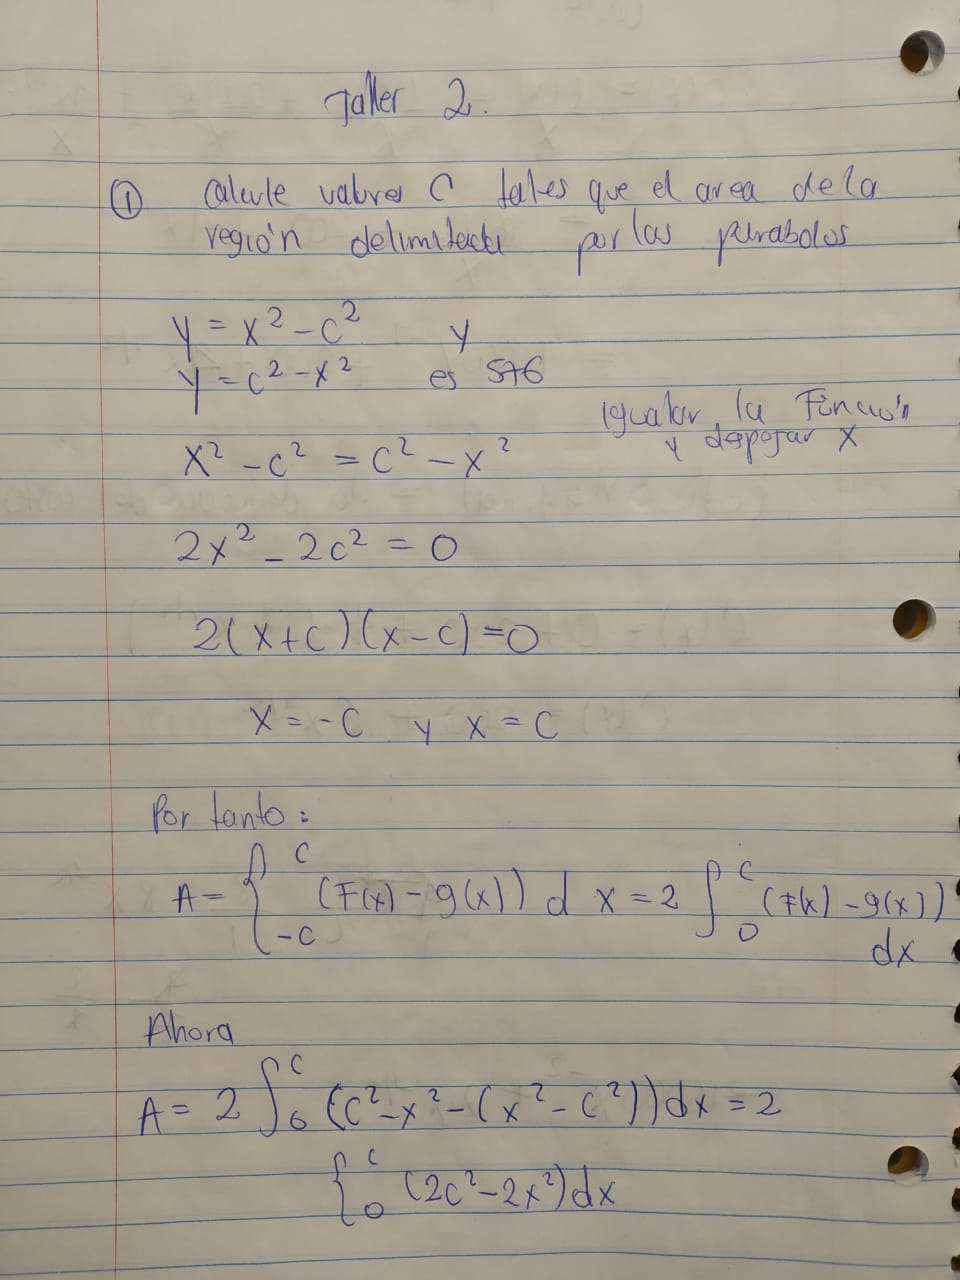 Taller 2.
① Calcule valores C tales que el area de la
región delimitada por las parabolas
y = x² - c² y
y = c² - x² es 576
Igualar la Función
y despejar x
x² - c² = c² - x²
2x² - 2c² = 0
2(x+c)(x-c)=0
x = -c y x = c
Por tanto:
A = ∫_{-c}^{c} (F(x) - g(x)) d x = 2 ∫_{0}^{c} (F(x) - g(x))
dx
Ahora
A = 2 ∫_{0}^{c} (c² - x² - (x² - c²)) dx = 2
∫_{0}^{c} (2c² - 2x²) dx